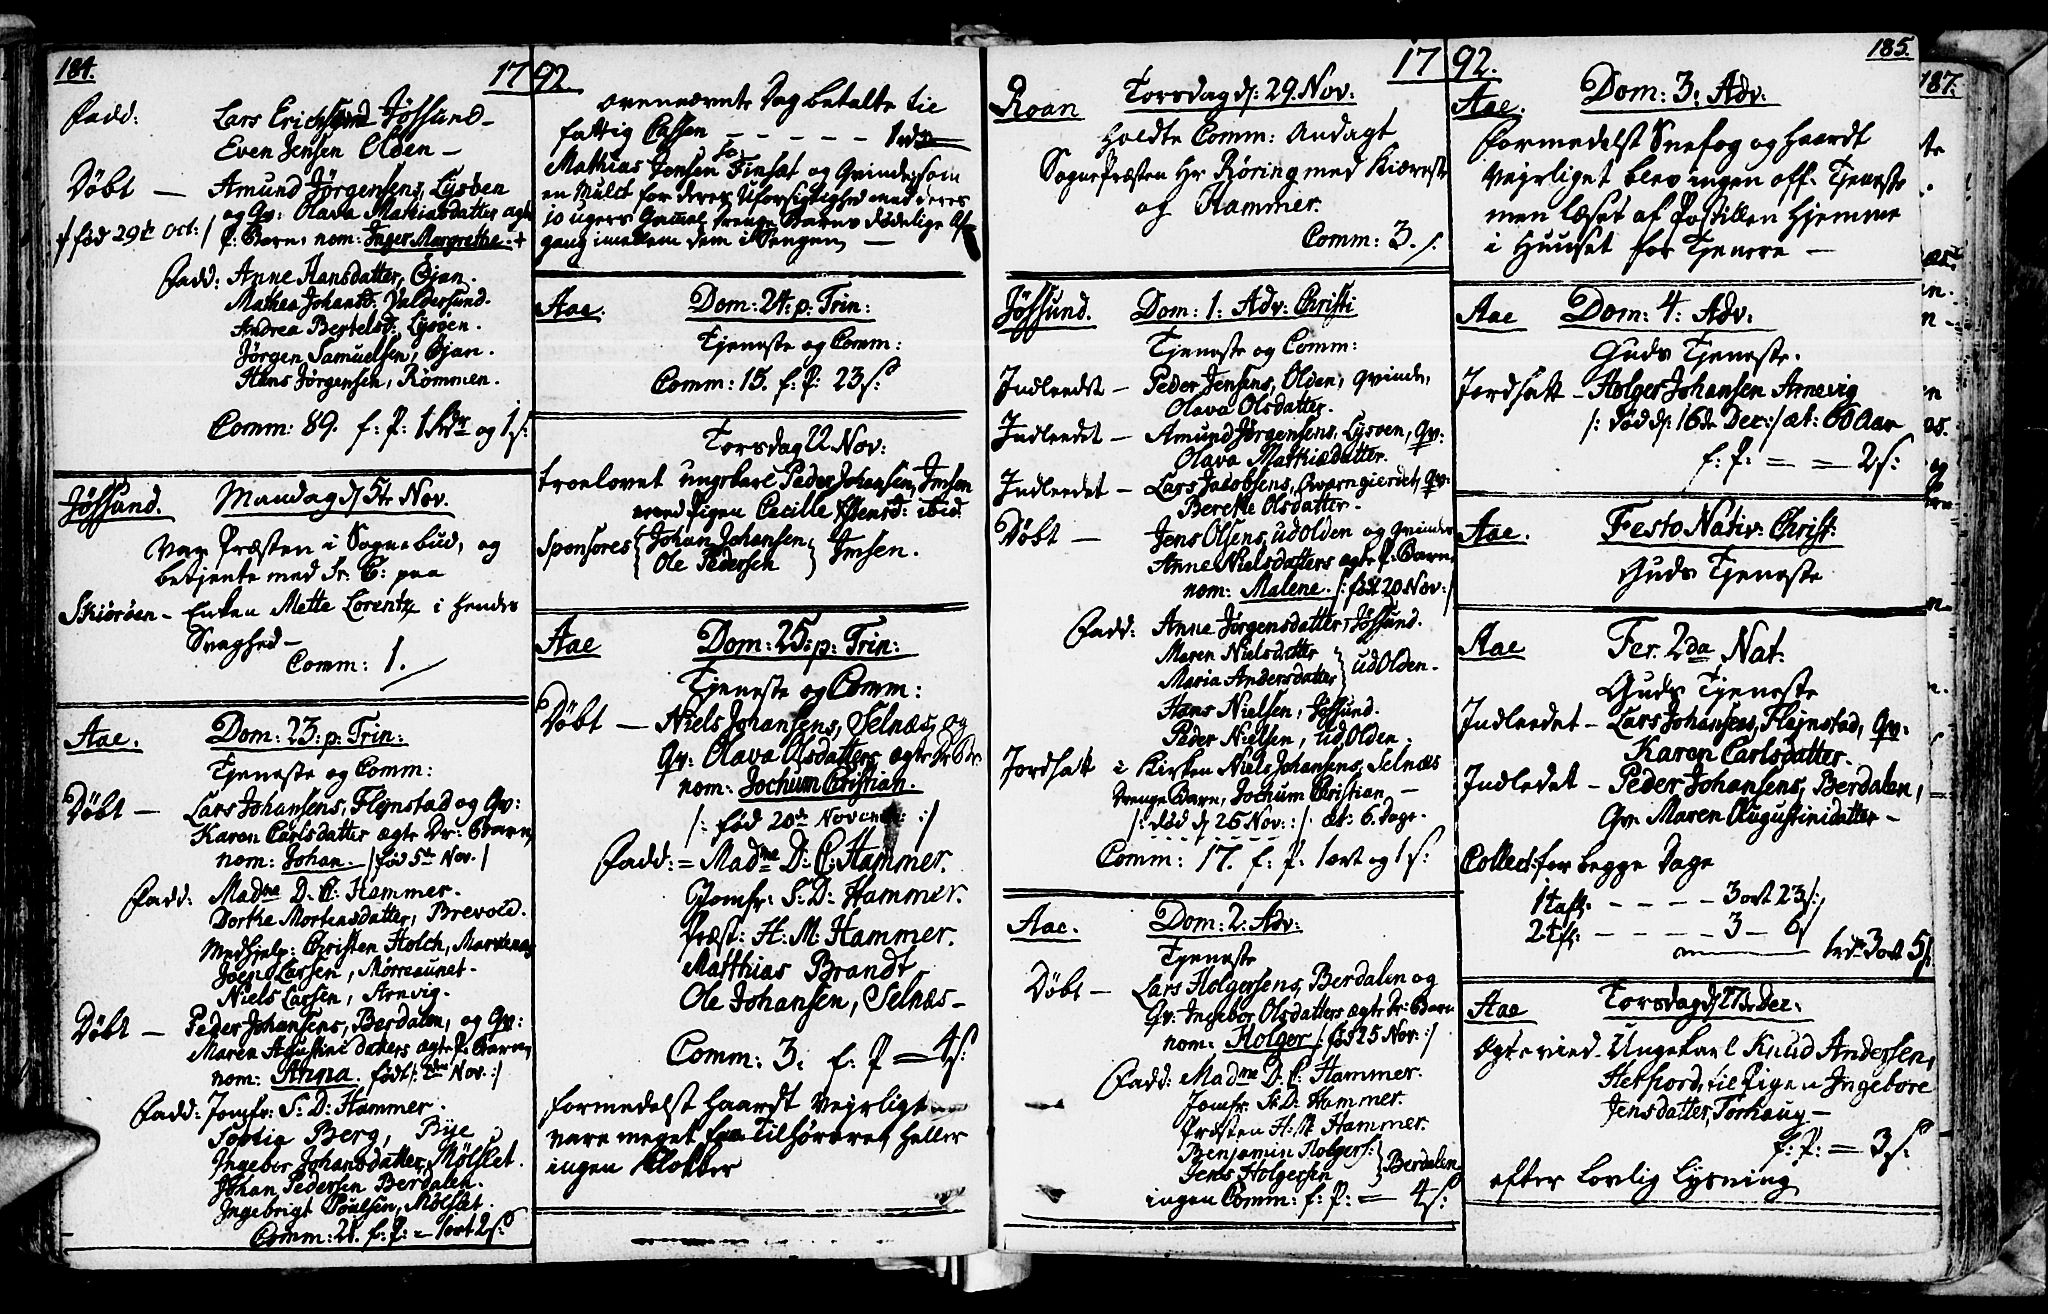 184.
1792.
Fadd: Lars Erichsen Jøssund
Even Jensen Olden
Døbt — Amund Jørgensens, Lysøen
og Qv: Olava Mathiasdatter ægte
/ fød 29de Oct: / P: Barn, nom: Inger Margrethe.
Fadd: Anne Hansdatter, Øjan.
Mathea Johansd: Valdersund.
Andrea Bertelsd: Lysøen.
Jørgen Samuelsen, Øjan.
Hans Jørgensen, Rømmen.
Comm: 89. f: P: 1 Rdr og 1 s:
Jøssund. Mandag d 5te Nov.
Var Præsten i Sognebud, og
betjente med Sr. C: paa
Skiørøen — Enken Mette Lorentz i hendes
Svaghed —
Comm: 1.
Aae. Dom: 23: p: Trin:
Tjeneste og Comm:
Døbt — Lars Johansens, Flejnstad og Qv:
Karen Carlsdatter ægte Dr: Barn,
nom: Johan. / fød 5te Nov. /
Fadd: Madme D. C: Hammer.
Dorthe Mortensdatter, Brevold.
Medhjelp: Christen Holch,
Joen Larsen, Mørreaunet.
Niels Larsen, Arnvig.
Døbt — Peder Johansens, Berdalen, og Qv:
Maren Agustini datters ægte P: Barn,
nom: Anna. født /: Nov. :/
Fadd: Jomfr: S: D: Hammer.
Berg, Bye
Ingebor Johansdatter, Mølslet.
Johan Pedersen Berdalen.
Ingebrigt Poulsen, Mølslet.
Comm: 21. f: P: = 1 ort 2 s:
ovennævnte Dag betalte til
fattig Cassen — — — — — 1 rdr
Mathias Jensen Finset og Qvinde, som
en Mulct for deres Uforsigtighed med deres
10 ugers Gammel Drenge Barns dødelige Af-
gang imellem dem i Sengen, —
Aae. Dom: 24: p: Trin:
Tjeneste og Comm:
Comm: 15. f: P: 23 s:
Torsdag 22 Nov:
troelovet ungkarl Peder Johansen, Imsen
med Pigen Cecille Effensd: ibid.
Sponsores { Johan Johansen
Ole Pedersen } Imsen.
Aae Dom: 25: p: Trin:
Tjeneste og Comm:
Døbt — Niels Johansens, Selnæs, og
Qv: Olava Olsdatters ægte Dr: Br:
nom: Jochum Christian.
/: fød 20de Novembr: :/
Fadd: = Madme D: C: Hammer.
Jomfr: S: D: Hammer.
Præst: H: M: Hammer.
Matthias Brandt
Ole Johansen, Selnæs —
Comm: 3. f: P = 4 s:
formedelst haardt Vejrligt
vare meget faa Tilhørere, heller
ingen Klokker
1792.
185.
Roan Torsdag d: 29. Nov:
holdte Comm: Andagt
SognePræsten Hr Røring med Kiæreste
og Hammer.
Comm: 3. /.
Jøssund. Dom: 1: Adv: Christi
Tjeneste og Comm:
Indleedt — Peder Jensens, Olden, qvinde,
Olava Olsdatter.
Indleedet — Amund Jørgensens, Lysøen, Qv:
Olava Mathiædatter.
Indleedet — Lars Jacobsens, Qvarngierdet, Qv:
Berethe Olsdatter.
Døbt — Jens Olsens, udOlden og qvindes
Anne Nielsdatters ægte P: Barn
nom: Malene. /: fød 20 Nov: /
Fadd: Anne Jørgensdatter, Jøssund.
Maren Nielsdatter
Maria Andersdatter } udOlden.
Hans Nielsen, Jøssund.
Peder Nielsen, udOlden.
Jordsatt i Kirken Niels Johansens, Selnæs
Drenge Barn, Jochum Christian —
/: død d 26 Nov: :/ æt: 6. Dage.
Comm: 17. f: P: 1 ort og 1 s:
Aae. Dom: 2: Adv:
Tjeneste
Døbt — Lars Holgersens, Berdalen og
Qv: Ingebor Olsdatters ægte Dr: Barn
nom: Holger /: fød 25 Nov: :/
Fadd: Madme D: C: Hammer.
Jomfr: S: D: Hammer.
Præsten H: M: Hammer.
Benjamin Holgers:
Jens Holgersen } Berdalen
ingen Comm: f: P: = 4 s:
Aae. Dom: 3: Adv:
formedelst Snefog og haardt
Vejrliget blev ingen off. Tjeneste
men læset af Postillen hjemme
i Huuset for Tjenere —
Aae Dom: 4: Adv:
Guds Tjeneste.
Jordsatt — Holger Johansen Arnevig
/: død d: 16de Dec: / æt: 60 Aar
f: P: = = 2 s:
Aae. Festo Nativ: Christ:
Guds Tjeneste
Aae Fer. 2da Nat:
Guds Tjeneste
Indleedet — Lars Johansens, Flejnstad, Qv:
Karen Carlsdatter.
Indledet — Peder Johansens, Berdalen,
Qv: Maren Augustinidatter —
Collect: for begge Dage
1 tafl: — — — — 3 ort 23 s:
2 tfl: — — — — 3 — 6
1 rdr 3 ort 5 s.
Aae Torsdag d 27de Dec:
Ægtevied — Ungekarl Knud Andersen,
Hetfiord, til Pigen Ingebore
Jensdatter, Torhaug —
f: P: = 3 s:
efter lovlig Lysning
187.